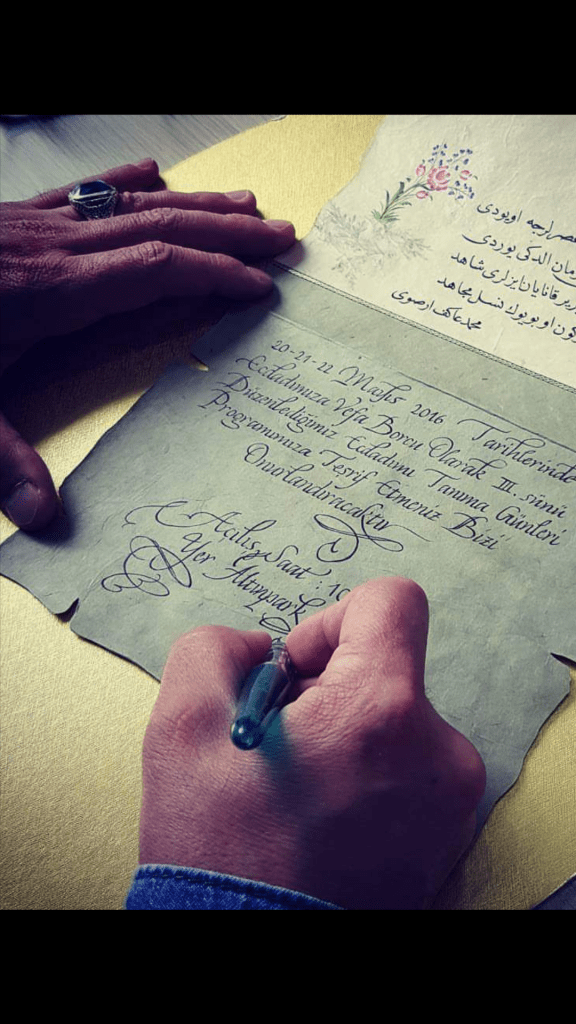 عصرلرجه اویودی
زمان الدکی یوردی
یر قانایان ایزلری شاهد
كون او بویوك نسل مجاهد
محمد عاكف ارصوی
20-21-22 Mayıs 2016 Tarihlerinde
Ecdadımıza Vefa Borcu Olarak III. sünü
Düzenlediğimiz Ecdadımı Tanıma Günleri
Programımıza Teşrif Etmeniz Bizi
Onurlandıracaktır
Açılış Saat : 10
Yer Altınpark